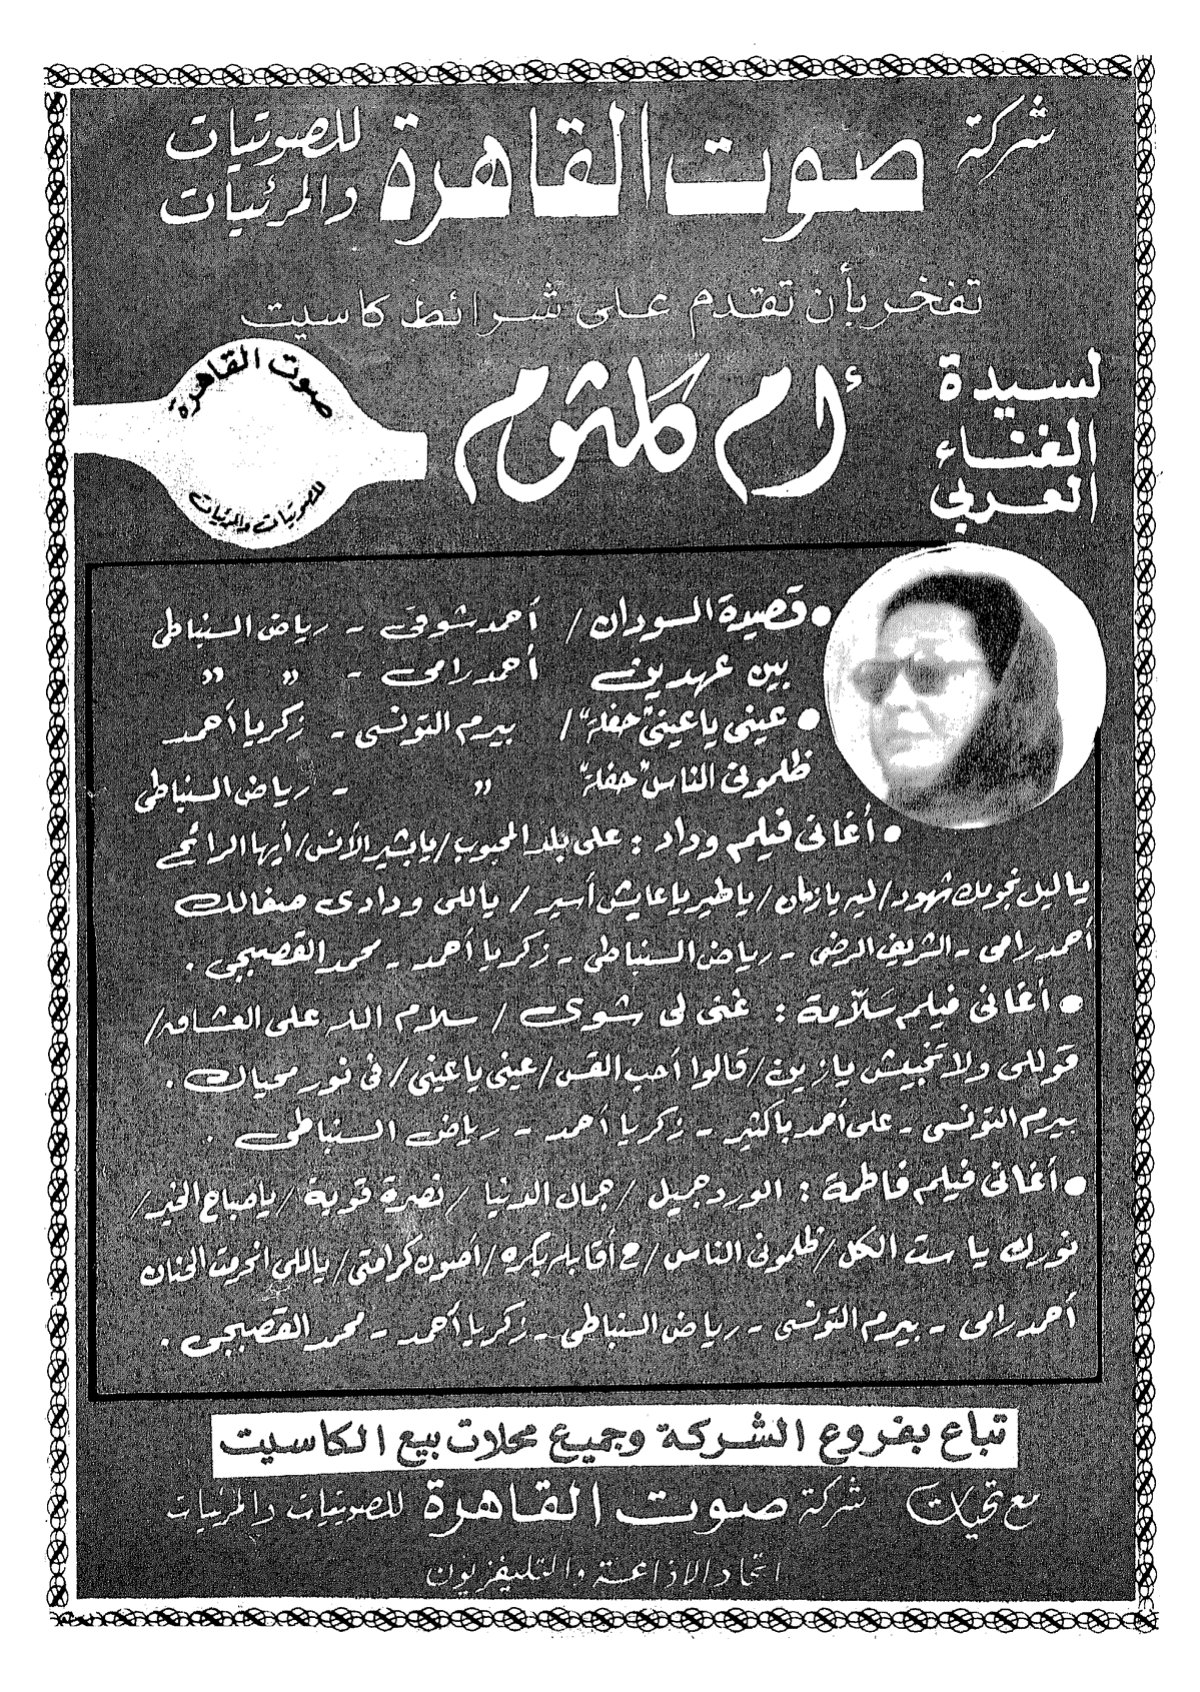 شركة صوت القاهرة للصوتيات والمرئيات
تفخر بأن تقدم على شرائط كاسيت
لسيدة الغناء العربي أم كلثوم
صوت القاهرة
للصوتيات والمرئيات
• قصيدة السودان / أحمد شوقى - رياض السنباطى
بين عهدين أحمد رامى - " "
• عينى يا عينى "حفلة" / بيرم التونسى - زكريا أحمد
ظلمونى الناس "حفلة" " - رياض السنباطى
• أغانى فيلم وداد : على بلد المحبوب / يا بشير الأنس / أيها الرائح
يا ليل نجومك شهود / ليه يا زمان / يا طير يا عايش أسير / ياللى ودادى صفالك
أحمد رامى - الشريف الرضى - رياض السنباطى - زكريا أحمد - محمد القصبجى .
• أغانى فيلم سَلّامة : غنى لى شوى / سلام الله على العشاق /
قوللى ولا تخبيش يا زين / قالوا أحب القس / عينى يا عينى / فى نور محياك .
بيرم التونسى - على أحمد باكثير - زكريا أحمد - رياض السنباطى .
• أغانى فيلم فاطمة : الورد جميل / جمال الدنيا / نصرة قوية / يا صباح الخير /
نورك يا ست الكل / ظلمونى الناس / ح أقابله بكره / أصون كرامتى / ياللى انحرمت الحنان
أحمد رامى - بيرم التونسى - رياض السنباطى - زكريا أحمد - محمد القصبجى .
تباع بفروع الشركة وجميع محلات بيع الكاسيت
مع تحيات شركة صوت القاهرة للصوتيات والمرئيات
اتحاد الاذاعة والتليفزيون